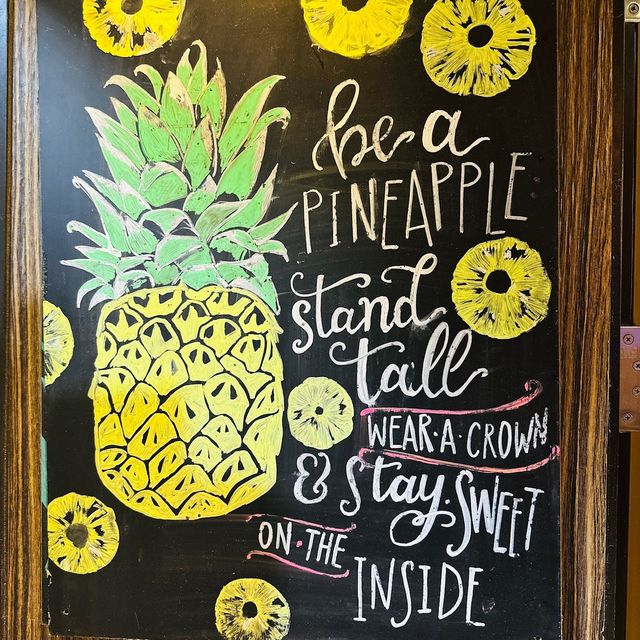 be a
PINEAPPLE
stand
tall
WEAR·A·CROWN
& stay SWEET
ON·THE
INSIDE